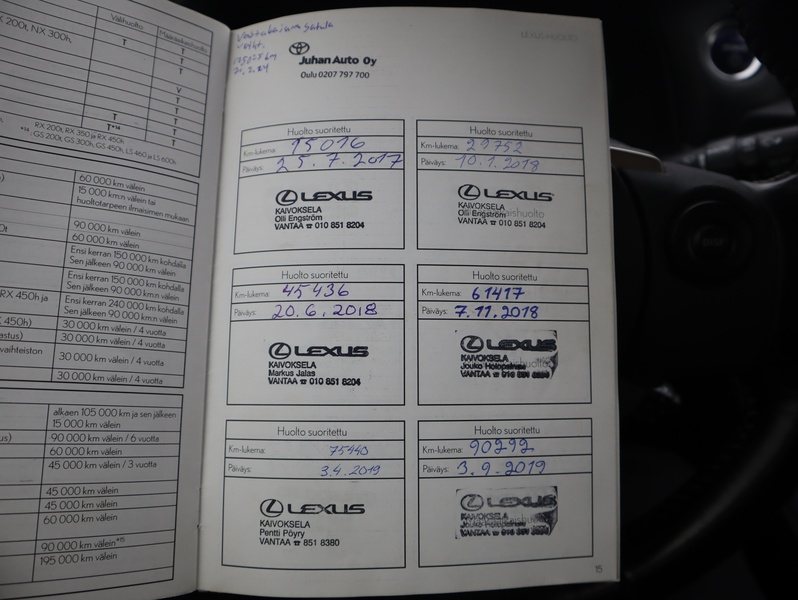 X 200t, NX 300h,
Välihuolto
Määräaikaishuolto
T
T
T
T
V
T
T
T
T
T*¹⁸
T
RX 200t, RX 350 ja RX 450h
GS 200t, GS 300h, GS 450h, LS 460 ja LS 600h
60 000 km välein
15 000 km:n välein tai
huoltotarpeen ilmaisimen mukaan
90 000 km välein
60 000 km välein
Ensi kerran 150 000 km kohdalla
Sen jälkeen 90 000 km välein
RX 450h ja
Ensi kerran 150 000 km kohdalla
Sen jälkeen 90 000 km:n välein
Ensi kerran 240 000 km kohdalla
Sen jälkeen 90 000 km:n välein
450h)
30 000 km välein / 4 vuotta
30 000 km välein / 4 vuotta
vaihteiston
30 000 km välein / 4 vuotta
30 000 km välein / 4 vuotta
alkaen 105 000 km ja sen jälkeen
15 000 km välein
90 000 km välein / 6 vuotta
60 000 km välein
45 000 km välein / 3 vuotta
45 000 km välein
45 000 km välein
60 000 km välein
90 000 km välein*¹⁵
195 000 km välein
Juhan Auto Oy
Oulu 0207 797 700
LEXUS-HUOLTO
Huolto suoritettu
Km-lukema: 15016
Päiväys: 25.7.2017
LEXUS
KAIVOKSELA
Olli Engström
VANTAA ☎ 010 851 8204
Huolto suoritettu
Km-lukema: 29752
Päiväys: 10.1.2018
LEXUS
KAIVOKSELA
Olli Engström
VANTAA ☎ 010 851 8204
Huolto suoritettu
Km-lukema: 45436
Päiväys: 20.6.2018
LEXUS
KAIVOKSELA
Markus Jalas
VANTAA ☎ 010 851 8204
Huolto suoritettu
Km-lukema: 61417
Päiväys: 7.11.2018
LEXUS
KAIVOKSELA
Jouko Holopainen
VANTAA
Huolto suoritettu
Km-lukema: 75440
Päiväys: 3.4.2019
LEXUS
KAIVOKSELA
Pentti Pöyry
VANTAA ☎ 851 8380
Huolto suoritettu
Km-lukema: 90292
Päiväys: 3.9.2019
LEXUS
KAIVOKSELA
Jouko Holopainen
VANTAA
15